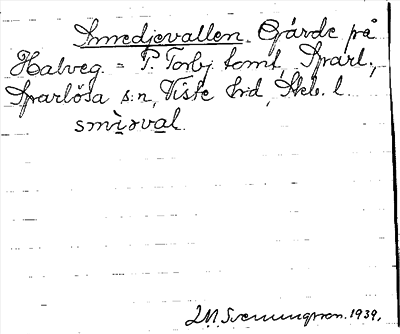 Smedjevallen. Gärde på
Halveg. = P. Torby tomt, Sparl.,
Sparlösa s:n, Viste hrd, Skb. l.
smìɔval.
Sveningsson. 1939.